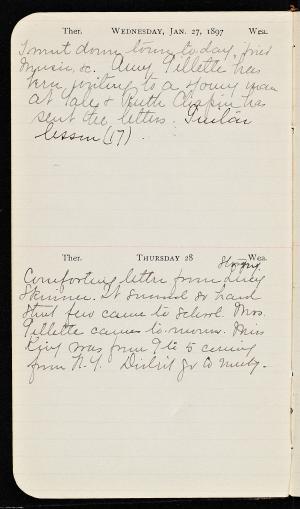 Ther. WEDNESDAY, JAN. 27, 1897 Wea.
I went down town to day, fried
music, &c. Amy Gillette has
been writing to a young man
at Yale & Ruth Chapin has
sent the letters. Guitar
lesson (17).
Ther. THURSDAY 28 Wea.
Stormy
Comforting letter from Lucy
Skinner. It snowed so hard
that few came to school Mrs.
Gillette came to-morn. Miss
King was from 9 to 5 coming
from N.Y. Didn't go to